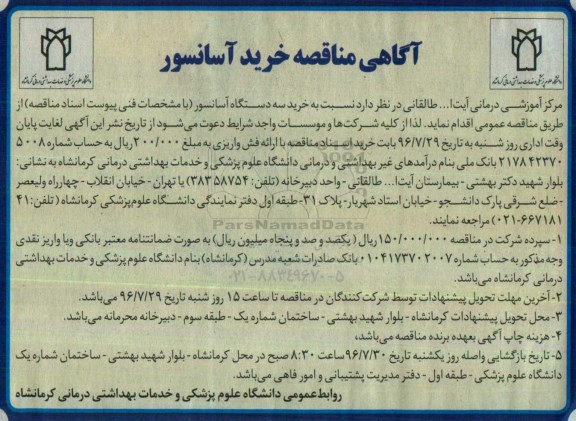 آگاهی مناقصه خرید آسانسور
دانشگاه علوم پزشکی و خدمات بهداشتی درمانی کرمانشاه
دانشگاه علوم پزشکی و خدمات بهداشتی درمانی کرمانشاه
مرکز آموزشی درمانی آیت‌ا... طالقانی در نظر دارد نسبت به خرید سه دستگاه آسانسور (با مشخصات فنی پیوست اسناد مناقصه) از
طریق مناقصه عمومی اقدام نماید. لذا از کلیه شرکت‌ها و موسسات واجد شرایط دعوت می‌شود از تاریخ نشر این آگهی لغایت پایان
وقت اداری روز شنبه به تاریخ ۹۶/۷/۲۹ بابت خرید اسناد مناقصه با ارائه فش واریزی به مبلغ ۲۰۰/۰۰۰ ریال به حساب شماره ۵۰۰۸
۲۱۷۸۴۲۳۷۰ بانک ملی بنام درآمدهای غیر بهداشتی و درمانی دانشگاه علوم پزشکی و خدمات بهداشتی درمانی کرمانشاه به نشانی:
بلوار شهید دکتر بهشتی - بیمارستان آیت‌ا... طالقانی - واحد دبیرخانه (تلفن: ۳۸۳۵۸۷۵۴) یا تهران - خیابان انقلاب - چهارراه ولیعصر
- ضلع شرقی پارک دانشجو - خیابان استاد شهریار - پلاک ۳۱ - طبقه اول دفتر نمایندگی دانشگاه علوم پزشکی کرمانشاه (تلفن: ۴۱
۶۶۷۱۸۱-۰۲۱) مراجعه نمایند.
۱- سپرده شرکت در مناقصه ۱۵۰/۰۰۰/۰۰۰ ریال (یکصد و صد و پنجاه میلیون ریال) به صورت ضمانتنامه معتبر بانکی ویا واریز نقدی
وجه مذکور به حساب شماره ۰۱۰۴۱۷۳۷۰۲۰۰۷ بانک صادرات شعبه مدرس (کرمانشاه) بنام دانشگاه علوم پزشکی و خدمات بهداشتی
درمانی کرمانشاه می‌باشد.
۲- آخرین مهلت تحویل پیشنهادات توسط شرکت‌کنندگان در مناقصه تا ساعت ۱۵ روز شنبه تاریخ ۹۶/۷/۲۹ می‌باشد.
۳- محل تحویل پیشنهادات کرمانشاه - بلوار شهید بهشتی - ساختمان شماره یک - طبقه سوم - دبیرخانه محرمانه می‌باشد.
۴- هزینه چاپ آگهی بعهده برنده مناقصه می‌باشد،
۵- تاریخ بازگشایی واصله روز یکشنبه تاریخ ۹۶/۷/۳۰ ساعت ۸:۳۰ صبح در محل کرمانشاه - بلوار شهید بهشتی - ساختمان شماره یک
دانشگاه علوم پزشکی - طبقه اول - دفتر مدیریت پشتیبانی و امور فاهی می‌باشد.
روابط عمومی دانشگاه علوم پزشکی و خدمات بهداشتی درمانی کرمانشاه
ParsNamadData
۰۲۱-۸۸۳۴۹۶۷۰-۵